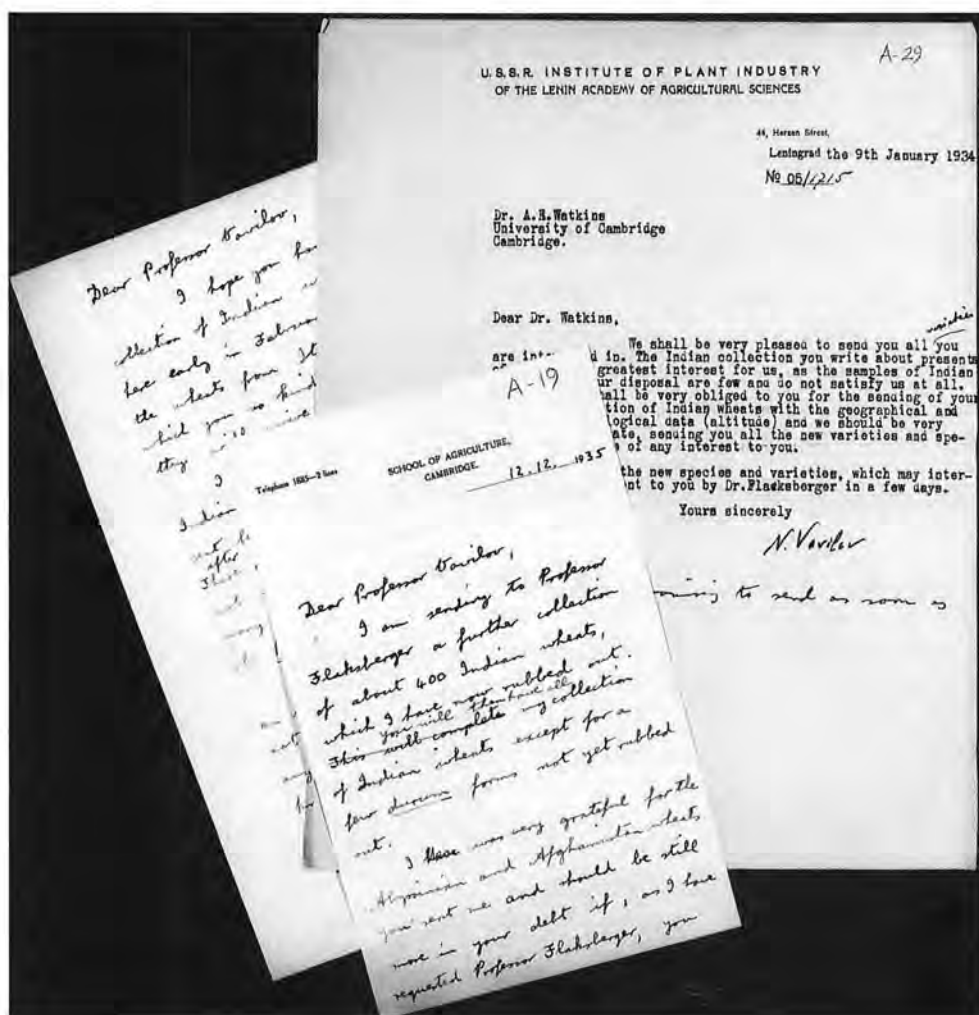 A-29
U.S.S.R. INSTITUTE OF PLANT INDUSTRY
OF THE LENIN ACADEMY OF AGRICULTURAL SCIENCES
44, Herzen Street,
Leningrad the 9th January 1934
No 05/1215
Dr. A.E.Watkins
University of Cambridge
Cambridge.
Dear Dr. Watkins,
varieties
We shall be very pleased to send you all you
are inte d in. The Indian collection you write about presents
greatest interest for us, as the samples of Indian
ur disposal are few and do not satisfy us at all.
hall be very obliged to you for the sending of your
tion of Indian wheats with the geographical and
logical data (altitude) and we should be very
ate, sending you all the new varieties and spe-
of any interest to you.
the new species and varieties, which may inter-
nt to you by Dr.Flacksberger in a few days.
Yours sincerely
N. Vavilov
to send as soon as
Dear Professor Vavilov,
I hope you ha
ollection of Indian w
here early in Febru
the wheats from
which you so kind
they
I
Indian
sent
after
A-19
Telephone 1885—2 lines
SCHOOL OF AGRICULTURE,
CAMBRIDGE.
12.12.1935
Dear Professor Vavilov,
I am sending to Professor
Flaksberger a further collection
of about 400 Indian wheats,
which I have now rubbed out.
you will then have all
This will complete my collection
of Indian wheats except for a
few durum forms not yet rubbed
out.
I have was very grateful for the
Abyssinian and Afghanistan wheats
you sent me and should be still
more in your debt if, as I have
requested Professor Flaksberger, you